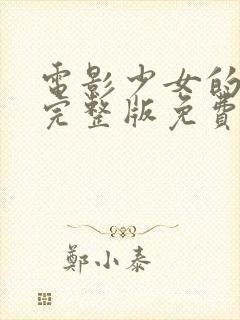 電影少女的
完整版免費
鄭小泰